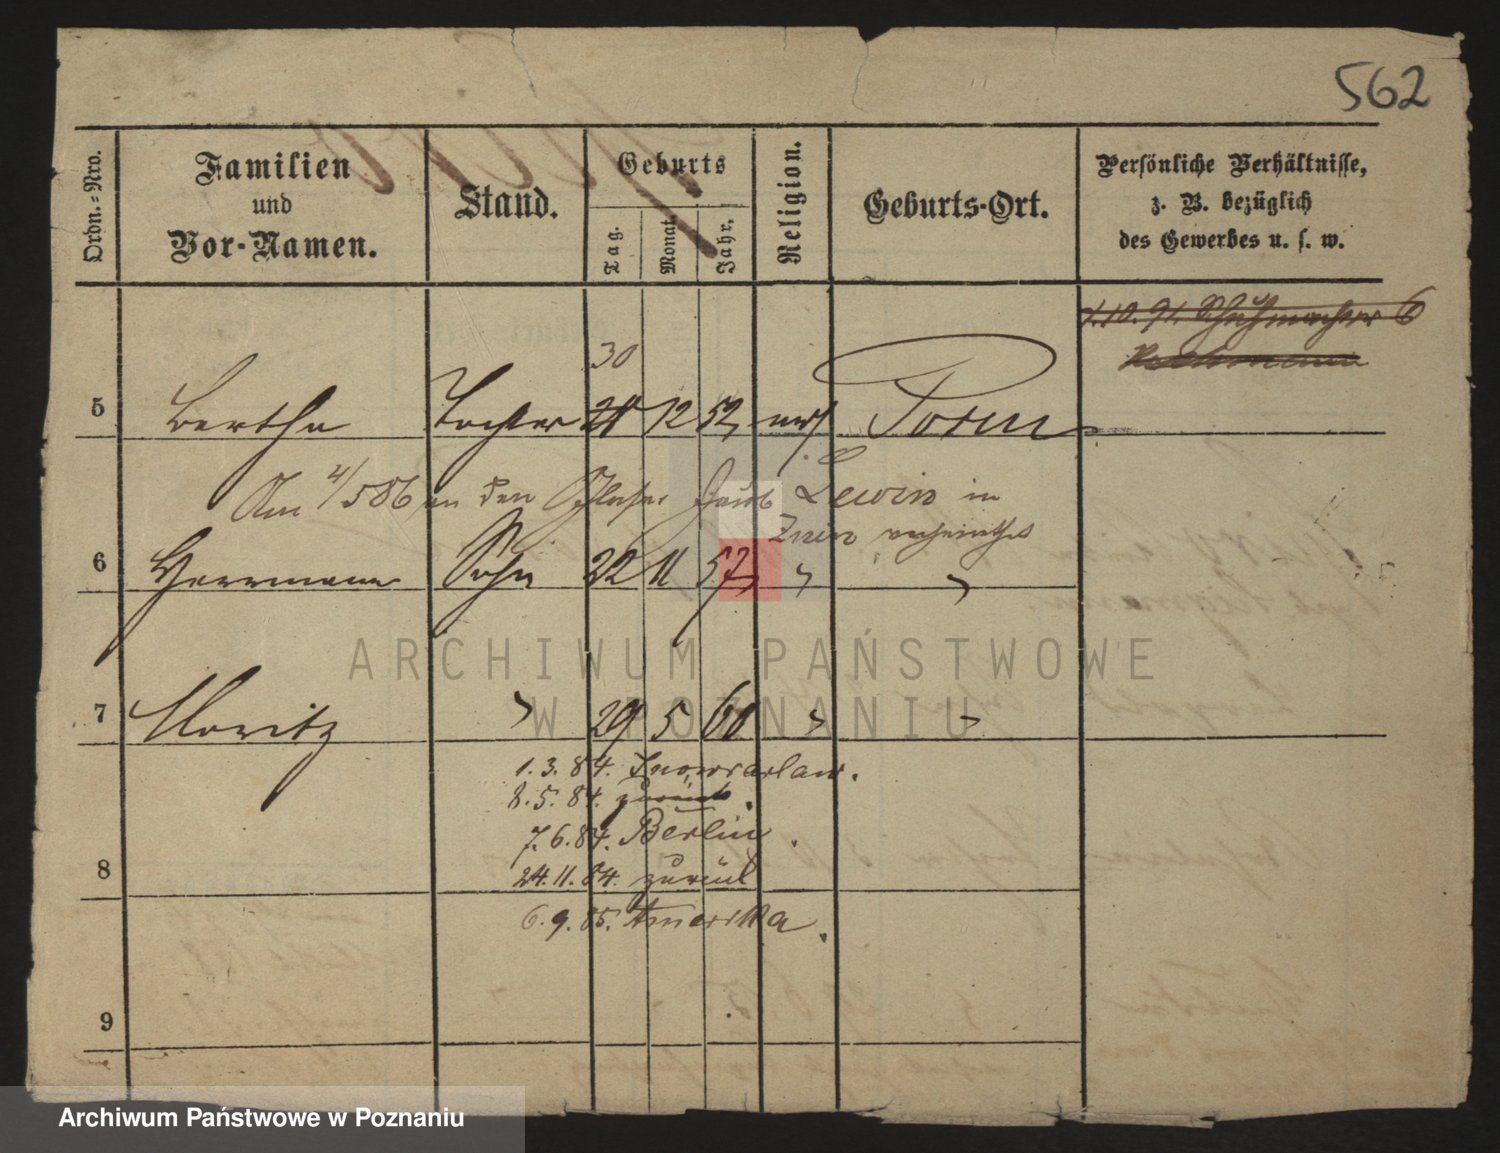 562
Ordn.-Nro. Familien und Vor-Namen. Stand. Geburts Tag. Monat. Jahr. Religion. Geburts-Ort. Persönliche Verhältnisse, z. B. bezüglich des Gewerbes u. s. w.
1.10.91. Schuhmacherstr 6
30
5 Bertha Tochter 12 52 mos Posen
Am 4/5 86 an den Schlosser Jacob Lewin in
Znin verheirathet
6 Herrmann Sohn 22 11 57 " "
ARCHIWUM PAŃSTWOWE
W POZNANIU
7 Moritz " 29 5 60 " "
1.3.84. Inowrazlaw.
8.5.84. zurück.
7.6.84. Berlin.
8 24.11.84. zurück
6.9.85. Amerika.
9
Archiwum Państwowe w Poznaniu